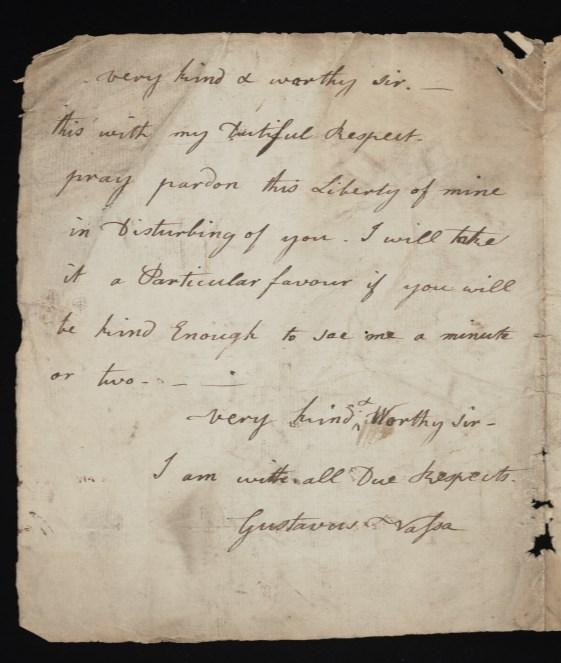 very kind & worthy sir. —
this with my Dutiful Respect.
pray pardon this Liberty of mine
in Disturbing of you. I will take
it a Particular favour if you will
be kind Enough to sae me a minute
or two - - -
very kind & Worthy sir -
I am with all Due Respects.
Gustavus Vassa